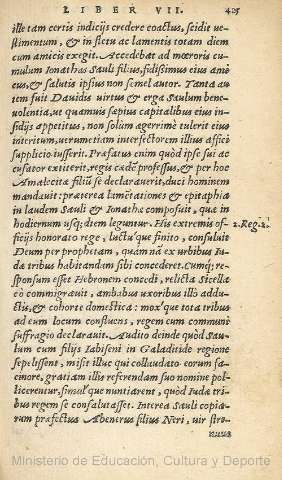 LIBER VII. 425
ille tam certis indicijs credere coactus, scidit ue-
stimentum, & in fletu ac lamentis totam diem
cum amicis exegit. Accedebat ad mœroris cu-
mulum Ionathas Sauli filius, fidissimus eius ami-
cus, & salutis ipsius non semel autor. Tanta au
tem fuit Dauidis uirtus & erga Saulum beneuo-
lentia, ut quamuis sæpius capitalibus eius in-
sidijs appetitus, non solùm ægerrimè tulerit eius
interitum, uerumetiam interfectorem illius affici
supplicio iusserit. Præfatus enim quòd ipse sui ac
cusator extiterit, regis cædē professus, & per hoc
Amalecitæ filiū se declarauerit, duci hominem
mandauit: præterea lamentationes & epitaphia
in laudem Sauli & Ionathæ composuit, quæ in
hodiernum usq; diem leguntur. His extremis of-
ficijs honorato rege, luctuq́ue finito, consuluit
Deum per prophetam, quam nā ex urbibus Iu-
dæ tribus habitandam sibi concederet. Cumq́;
responsum esset Hebronem concedi, relicta Sicella
eò commigrauit, ambabus uxoribus illò addu-
ctis, & cohorte domestica: moxq́ue tota tribus
ad eum locum confluens, regem eum communi
suffragio declarauit. Audito deinde quòd Sau-
lum cum filijs Iabiseni in Galaditide regione
sepelissent, misit illuc qui collaudato eorum fa-
cinore, gratiam illis referendam suo nomine pol-
licerentur, simulq́ue nuntiarent, quòd Iudæ tri-
bus regem se consalutasset. Interea Sauli copia-
rum præfectus Abenerus filius Neri, uir stre-
nuus
2. Reg. 2.
Ministerio de Educación, Cultura y Deporte